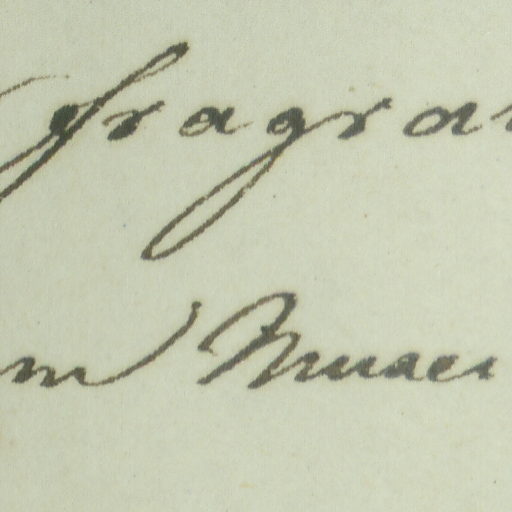 fragran
m Musaei